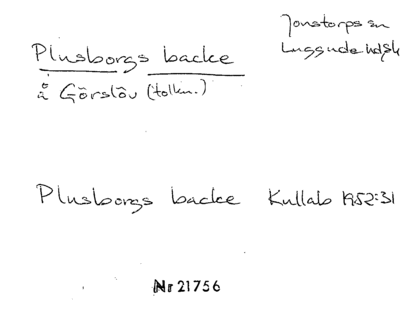 Jonstorps sn
Luggude hd, Sk
Plusborgs backe
å Görslöv (tolkn.)
Plusborgs backe Kullab 1952:31
Nr 21756